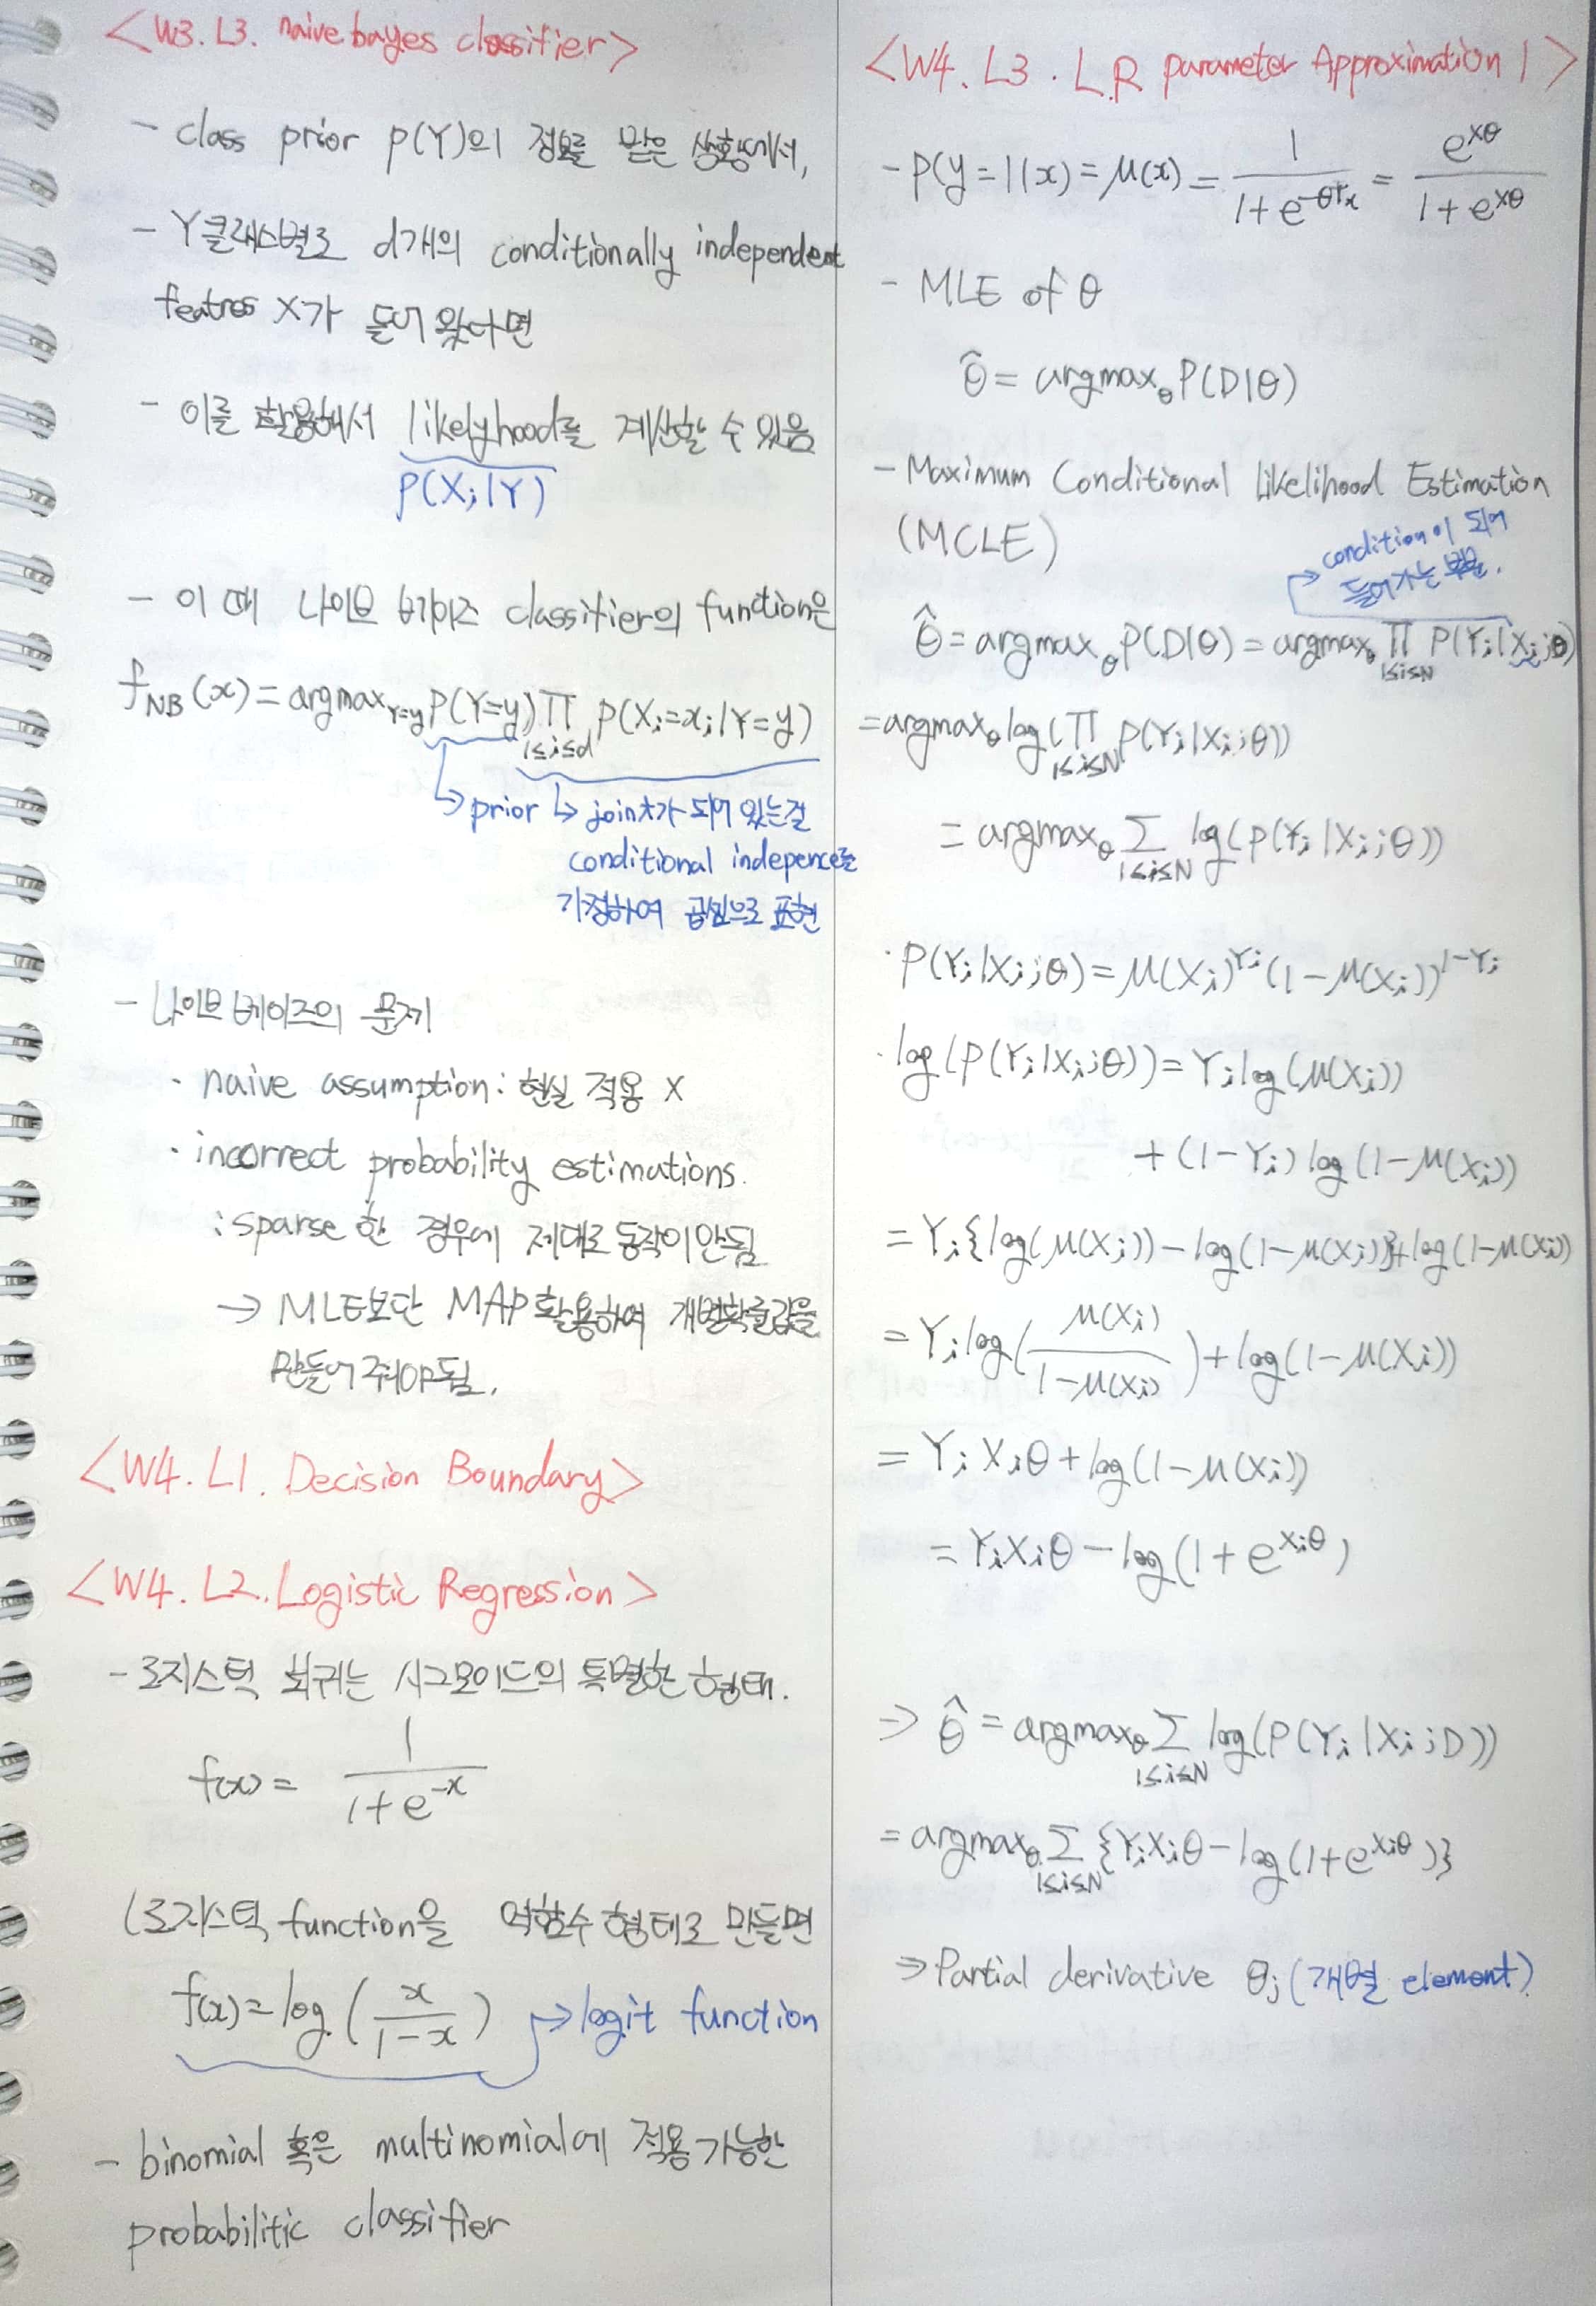 <W3. L3. naive bayes classifier>
- class prior P(Y)의 정보를 받은 상황에서,
- Y클래스별로 d개의 conditionally independent
featres X가 들어 왔다면
- 이를 활용해서 likelyhood를 계산할 수 있음
P(Xᵢ|Y)
- 이 때 나이브 베이즈 classifier의 function은
f_NB(x) = argmax_{Y=y} P(Y=y) ∏_{1≤i≤d} P(Xᵢ=xᵢ|Y=y)
↳ prior ↳ joint가 되어 있는걸
conditional indepence를
가정하여 곱셈으로 표현
- 나이브 베이즈의 문제
· naive assumption : 현실 적용 X
· incorrect probability estimations.
: sparse 한 경우에 제대로 동작이 안됨
→ MLE보단 MAP 활용하여 개별확률값을
만들어 줘야됨.
<W4. L1. Decision Boundary>
<W4. L2. Logistic Regression>
- 로지스틱 회귀는 시그모이드의 특별한 형태.
f(x) = 1/(1+e^{-x})
(로지스틱 function을 역함수 형태로 만들면
f(x) = log(x/(1-x)) → logit function
- binomial 혹은 multinomial에 적용 가능한
probabilitic classifier
<W4. L3. L.R parameter Approximation 1>
- P(y=1|x) = μ(x) = 1/(1+e^{-θᵀx}) = e^{xθ}/(1+e^{xθ})
- MLE of θ
θ̂ = argmax_θ P(D|θ)
- Maximum Conditional Likelihood Estimation
(MCLE)
→ condition이 되어
들어가는 부분.
θ̂ = argmax_θ P(D|θ) = argmax_θ ∏_{1≤i≤N} P(Yᵢ|Xᵢ;θ)
= argmax_θ log(∏_{1≤i≤N} P(Yᵢ|Xᵢ;θ))
= argmax_θ ∑_{1≤i≤N} log(P(Yᵢ|Xᵢ;θ))
· P(Yᵢ|Xᵢ;θ) = μ(Xᵢ)^{Yᵢ} (1-μ(Xᵢ))^{1-Yᵢ}
· log(P(Yᵢ|Xᵢ;θ)) = Yᵢ log(μ(Xᵢ))
+ (1-Yᵢ) log(1-μ(Xᵢ))
= Yᵢ{log(μ(Xᵢ)) - log(1-μ(Xᵢ))} + log(1-μ(Xᵢ))
= Yᵢ log(μ(Xᵢ)/(1-μ(Xᵢ))) + log(1-μ(Xᵢ))
= Yᵢ Xᵢθ + log(1-μ(Xᵢ))
= YᵢXᵢθ - log(1+e^{Xᵢθ})
⇒ θ̂ = argmax_θ ∑_{1≤i≤N} log(P(Yᵢ|Xᵢ;D))
= argmax_θ ∑_{1≤i≤N} {YᵢXᵢθ - log(1+e^{Xᵢθ})}
⇒ Partial derivative θⱼ (개별 element)